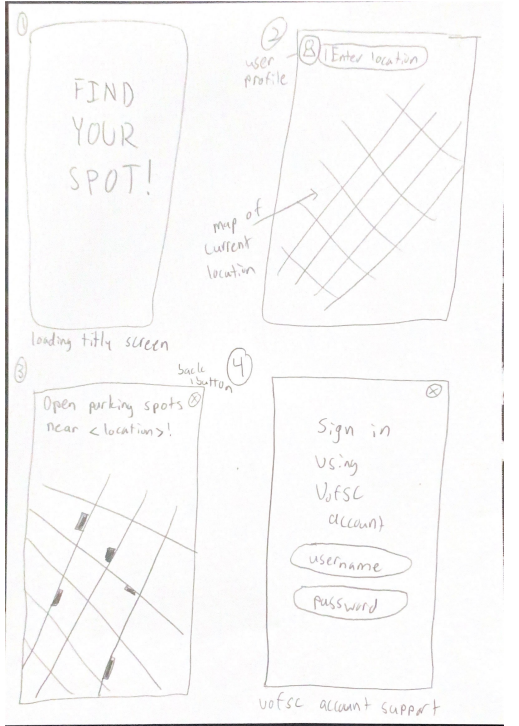 1
FIND
YOUR
SPOT!
loading titly screen
2
user
profile
Enter location
map of
current
location
3
back
button
Open parking spots
near <location>!
4
Sign in
using
UofSC
account
username
password
UofSC account support